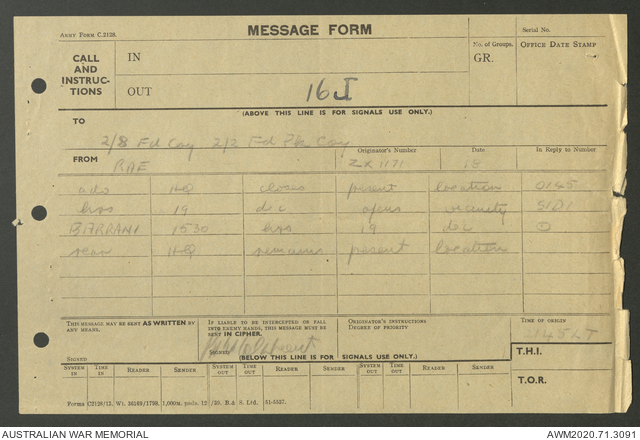 ARMY FORM C.2128.
MESSAGE FORM
Serial No.
CALL AND INSTRUC-TIONS
IN
No. of Groups.
GR.
OFFICE DATE STAMP
OUT
16 I
(ABOVE THIS LINE IS FOR SIGNALS USE ONLY.)
TO
2/8 Fd Coy 2/2 Fd Pk Coy
FROM
RAE
Originator's Number
ZX 1171
Date
18
In Reply to Number
adv HQ closes present location 0145
hrs 19 dec opens vicinity SIDI
BARRANI 1530 hrs 19 dec O
rear HQ remains present location
THIS MESSAGE MAY BE SENT AS WRITTEN BY ANY MEANS.
IF LIABLE TO BE INTERCEPTED OR FALL INTO ENEMY HANDS, THIS MESSAGE MUST BE SENT IN CIPHER.
ORIGINATOR'S INSTRUCTIONS
DEGREE OF PRIORITY
TIME OF ORIGIN
SIGNED
SIGNED
(BELOW THIS LINE IS FOR SIGNALS USE ONLY.)
T.H.I.
SYSTEM IN
TIME IN
READER
SENDER
SYSTEM OUT
TIME OUT
READER
SENDER
SYSTEM OUT
TIME OUT
READER
SENDER
T.O.R.
AUSTRALIAN WAR MEMORIAL
AWM2020.71.3091